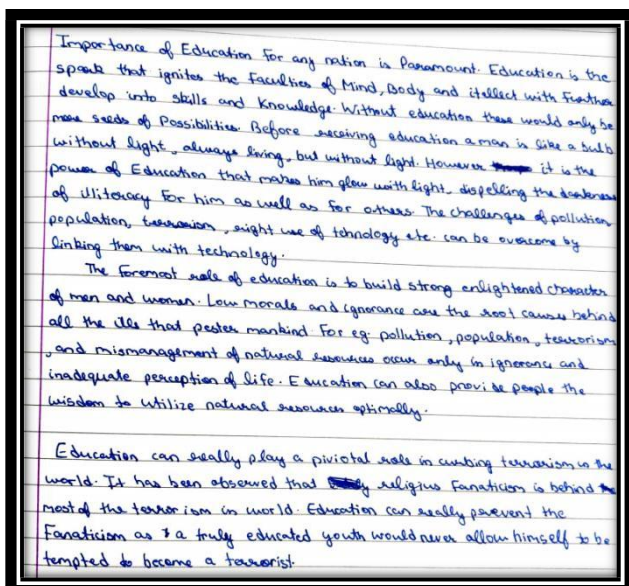 Importance of Education For any nation is Paramount. Education is the
spark that ignites the Faculties of Mind, Body and itellect with Further
develop into skills and Knowledge. Without education there would only be
mere seeds of Possibilities. Before receiving education a man is like a bulb
without light, always living, but without light. However it is the
power of Education that makes him glow with light, dispelling the darkness
of illiteracy For him as well as For others. The challenges of pollution
population, terrorism, right use of tchnology etc. can be overcome by
linking them with technology.
The Foremost role of education is to build strong enlightened character
of men and women. Low morals and ignorance are the root causes behind
all the ills that pester mankind. For eg. pollution, population, terrorism
, and mismanagement of natural resources occur only in ignerance and
inadequate perception of life. Education can also provide people the
wisdom to utilize natural resources optimally.
Education can really play a piviotal role in curbing terrorism in the
world. It has been observed that religius Fanaticism is behind
most of the terrorism in world. Education can really pervent the
Fanaticism as a truly educated youth would never allow himself to be
tempted to become a terrorist.